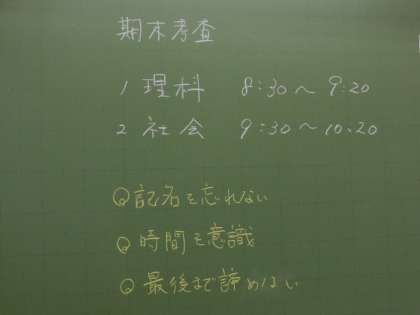 期末考査
1 理科 8:30〜9:20
2 社会 9:30〜10.20
◎記名を忘れない
◎時間を意識
◎最後まで諦めない